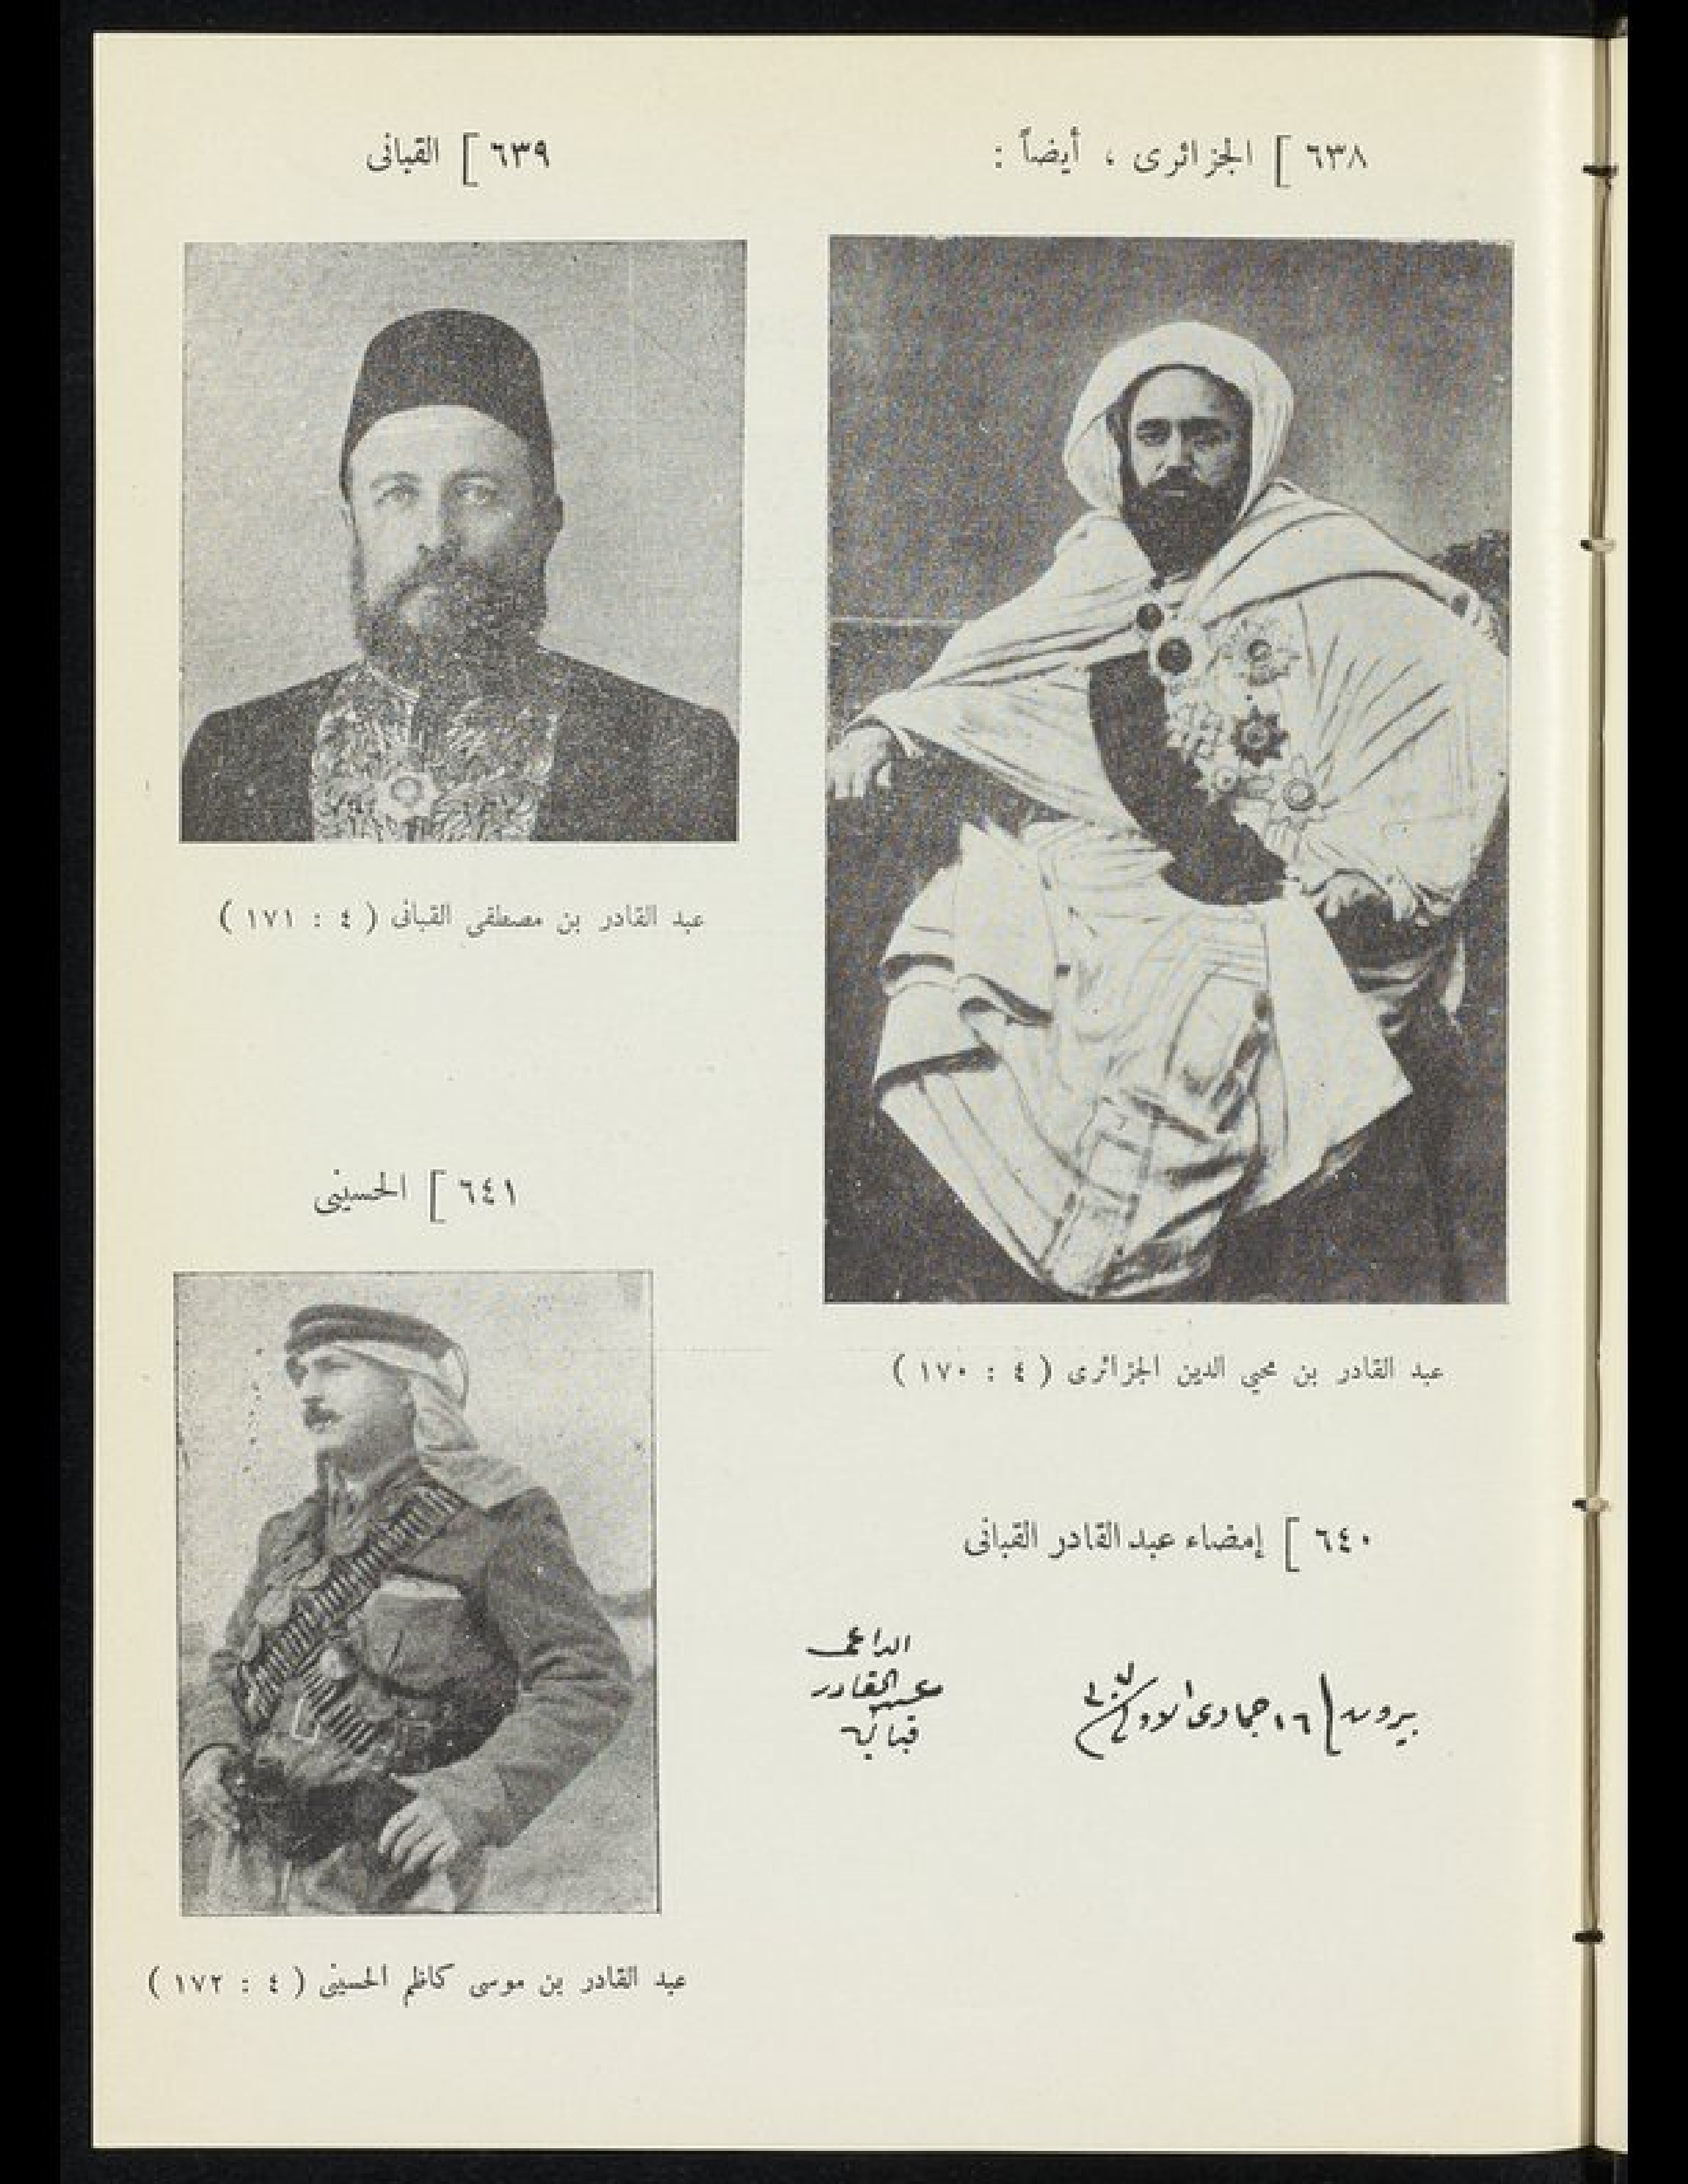 ٦٣٨ [ الجزائرى ، أيضاً :
عبد القادر بن محيي الدين الجزائرى ( ٤ : ١٧٠ )
٦٣٩ [ القبانى
عبد القادر بن مصطفى القبانى ( ٤ : ١٧١ )
٦٤٠ [ إمضاء عبد القادر القبانى
١٦ جمادى الاول
الداعى
عبد القادر
قبانى
٦٤١ [ الحسينى
عبد القادر بن موسى كاظم الحسينى ( ٤ : ١٧٢ )